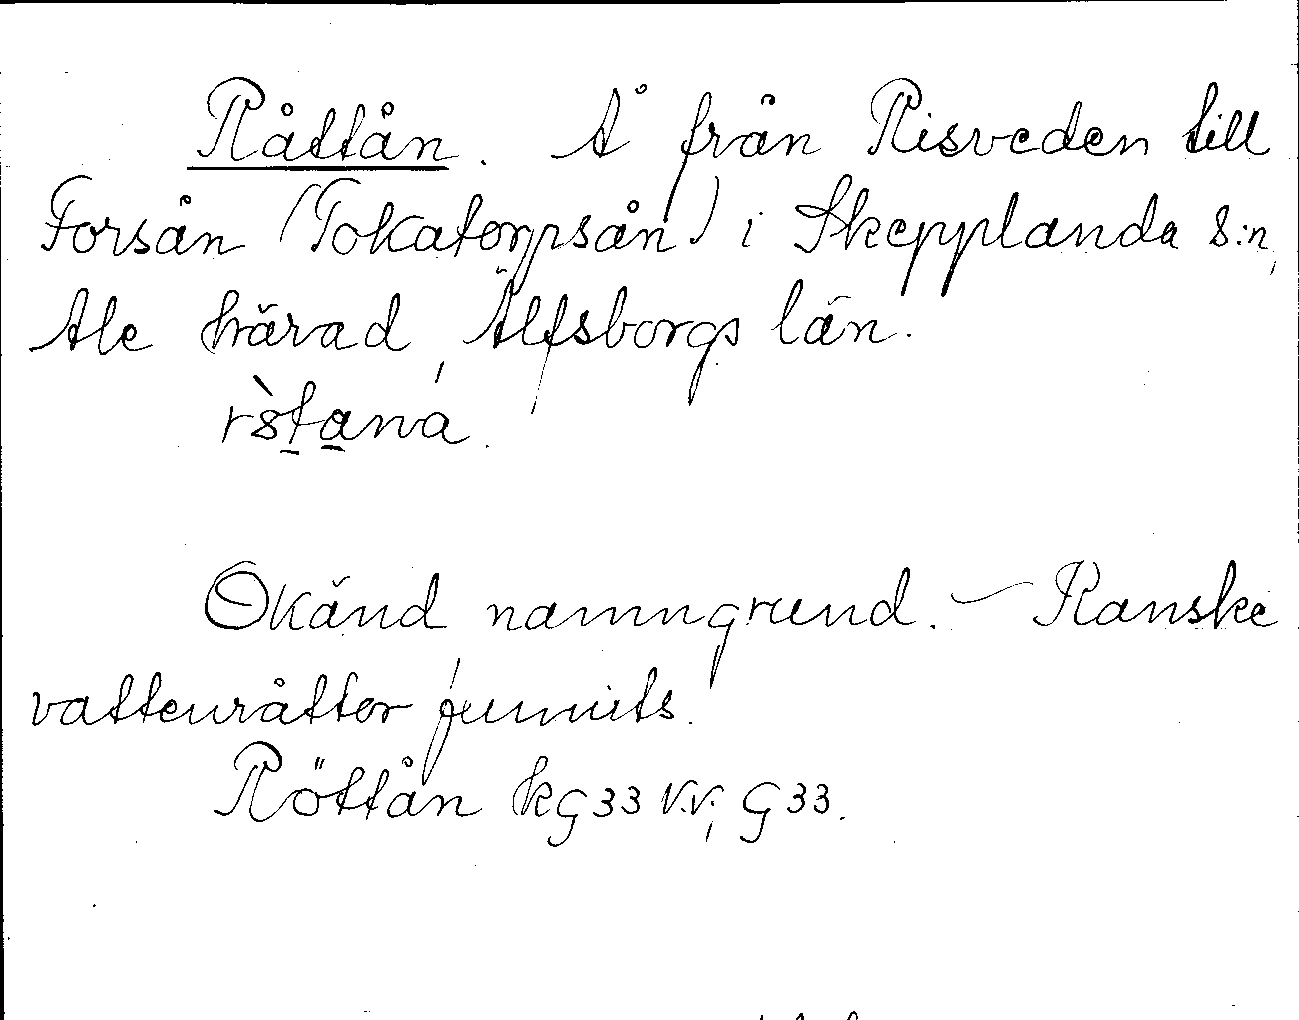 Råttån. Å från Risveden till
Forsån (Tokatorpsån) i Skepplanda s:n,
Ale härad, Älfsborgs län.
Okänd namngrund. – Kanske
vattenråttor funnits.
Röttån kG33 V.V; G33.